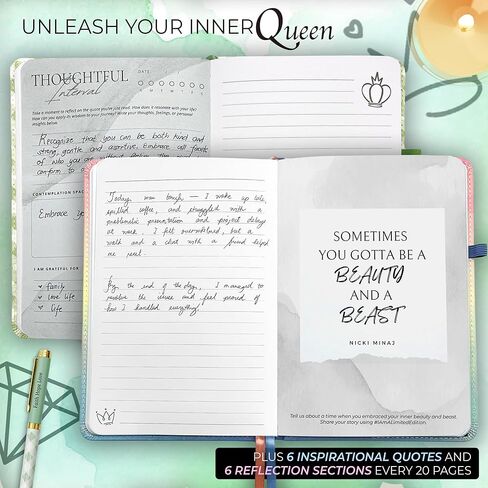 UNLEASH YOUR INNER Queen
THOUGHTFUL
Interval
DATE
S M T W T F S
Take a moment to reflect on the quote you've just read. How does it resonate with your life?
How can you apply its wisdom to your journey? Write your thoughts, feelings, or personal
insights below.
Recognize that you can be both kind and
strong, gentle and assertive. Embrace all facets
of who you are without
conform to
CONTEMPLATION SPACE
Embrace
I AM GRATEFUL FOR
family
love life
life
Today was tough — I woke up late,
spilled coffee, and struggled with a
problematic presentation and project delays
at work. I felt overwhelmed, but a
walk and a chat with a friend helped
me reset.
By the end of the day, I managed to
resolve the issue and feel proud of
how I handled everything!
SOMETIMES
YOU GOTTA BE A
BEAUTY
AND A
BEAST
NICKI MINAJ
Tell us about a time when you embraced your inner beauty and beast.
Share your story using #IAmALimitedEdition.
PLUS 6 INSPIRATIONAL QUOTES AND
6 REFLECTION SECTIONS EVERY 20 PAGES